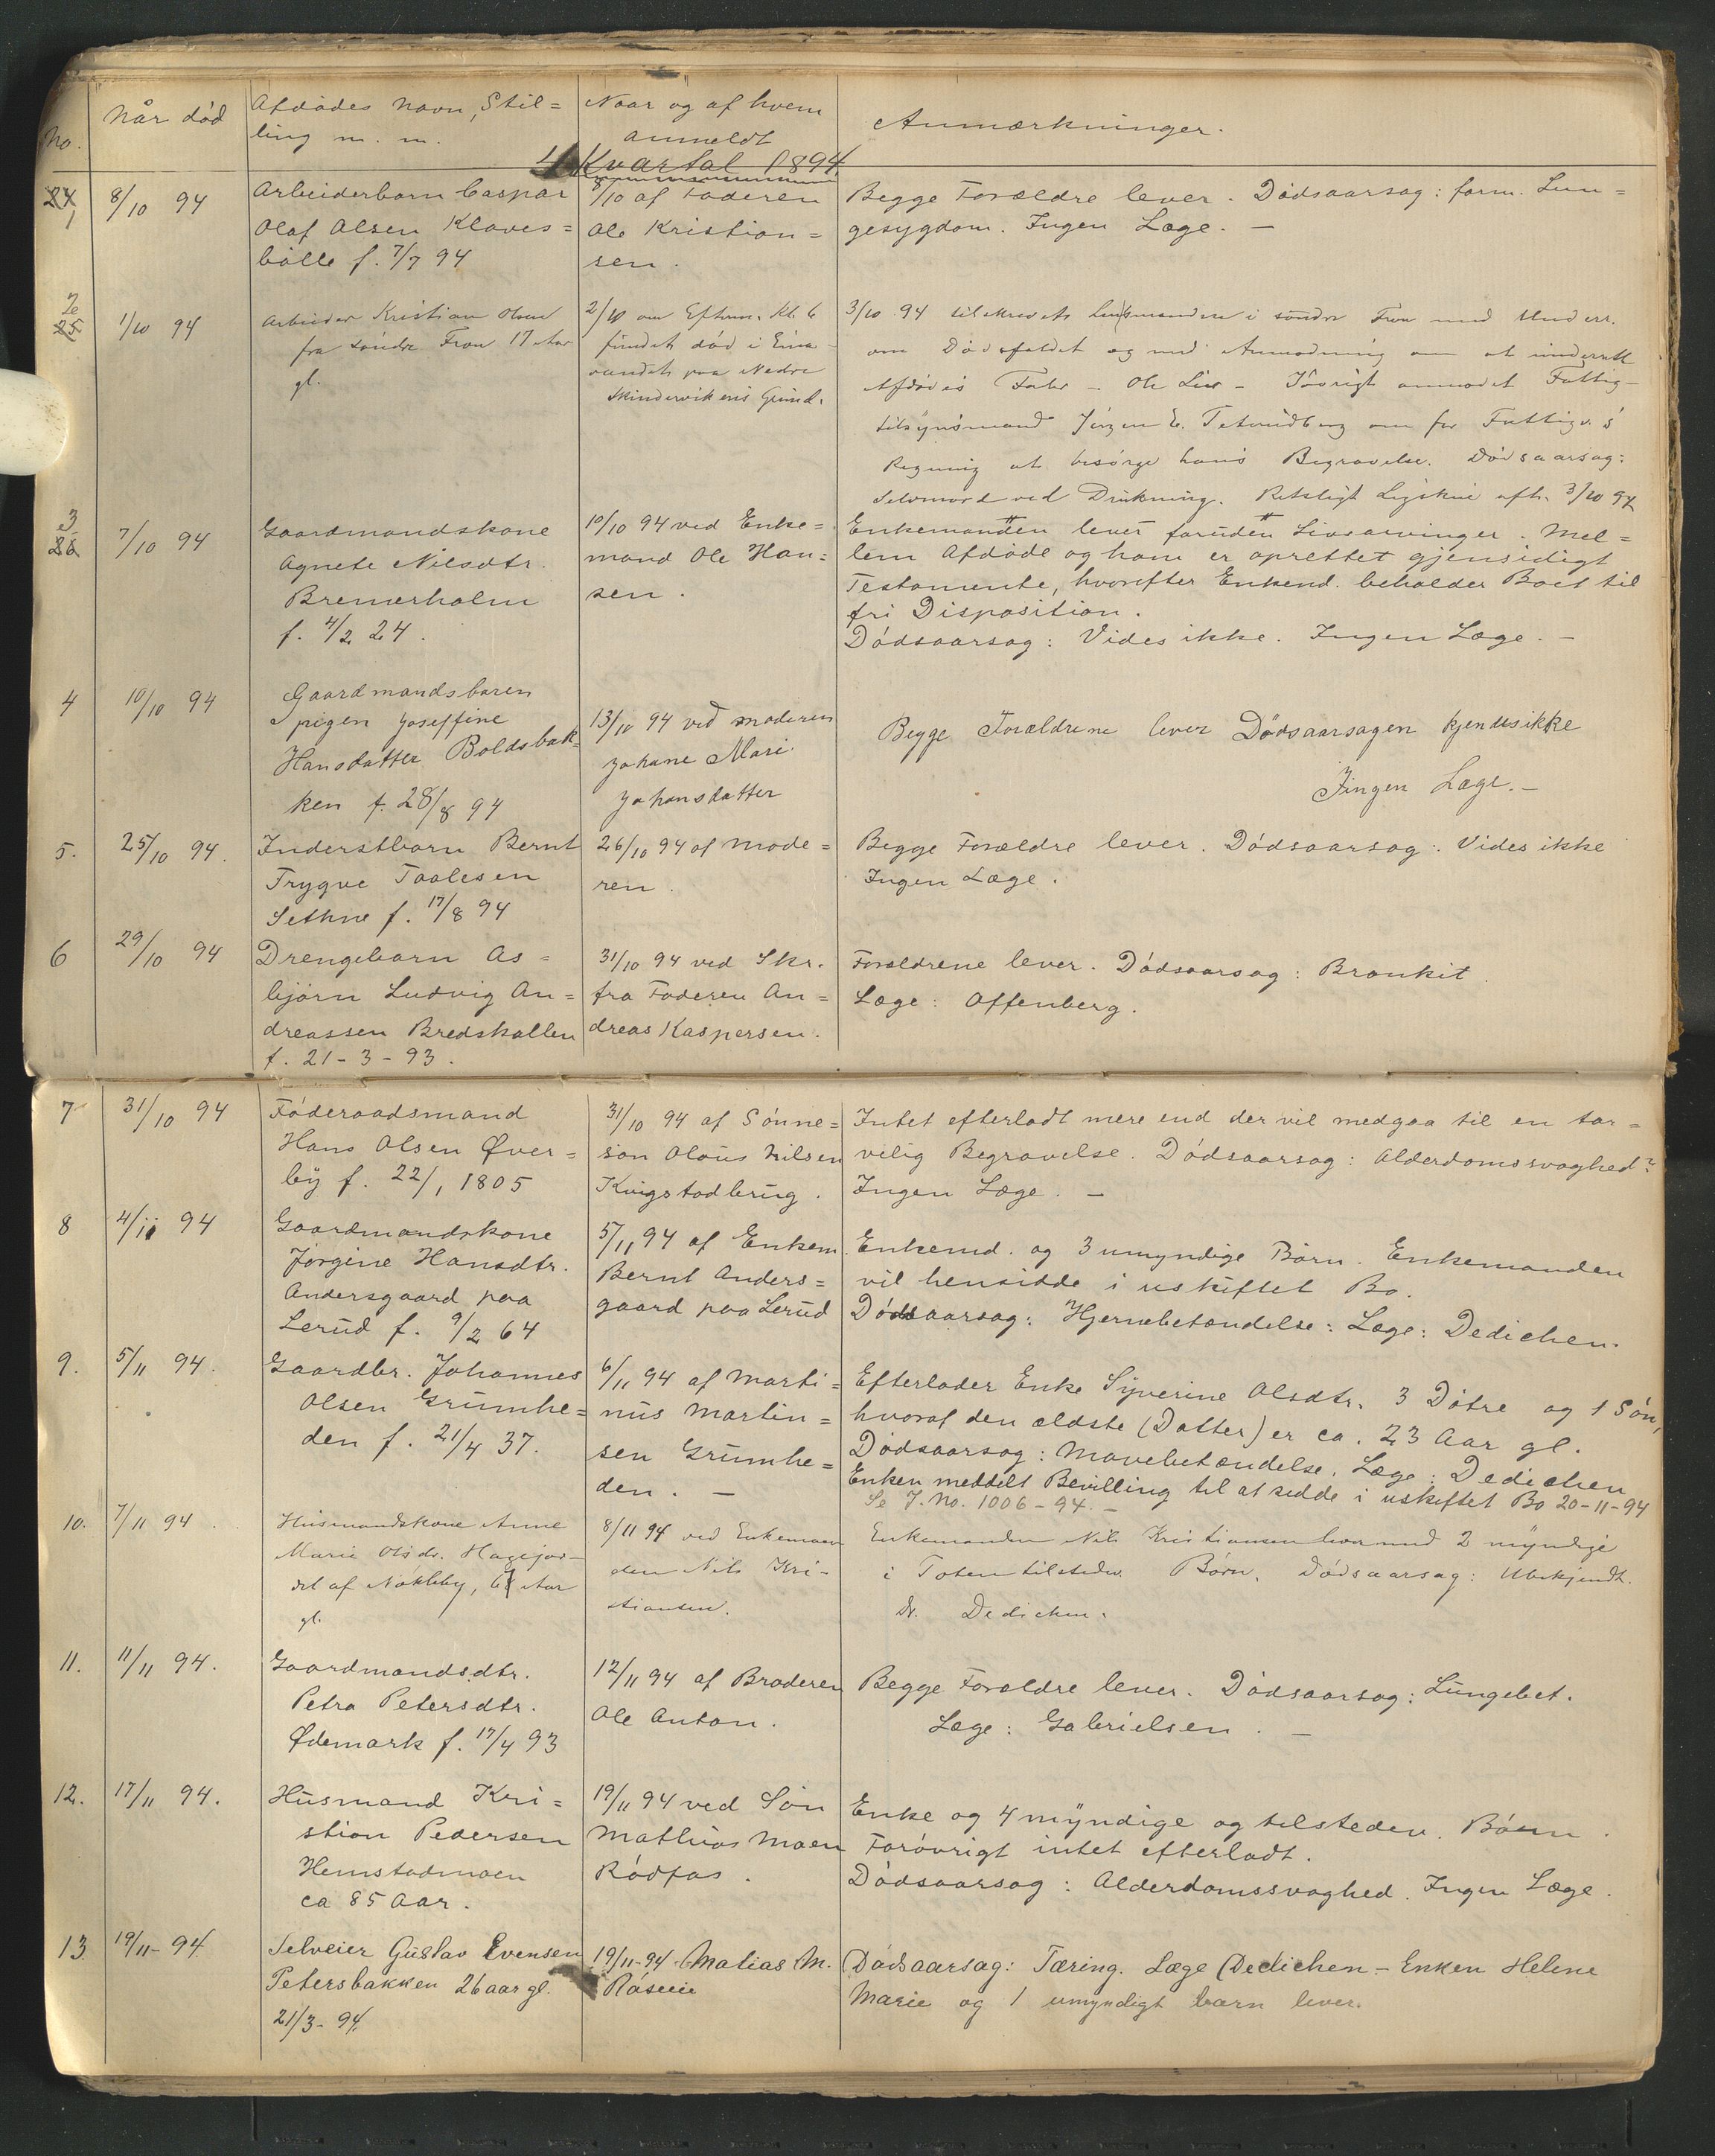 No.
Når död
Afdödes Navn, Stil=
ling m. m.
Naar og af hvem
anmeldt
Anmærkninger.
4 Kvartal 1894.
24
1
8/10 94
Arbeiderbarn Caspar
Olaf Olsen Kloves=
bölle f. 7/7 94
8/10 af Faderen
Ole Kristian=
sen.
Begge Forældre lever. Dödsaarsag: form. Lun=
gesygdom. Ingen Læge. —
2
25
1/10 94
Arbeider Kristian Olsen
fra söndre Fron 17 Aar
gl.
2/10 om Efterm. Kl. 6
fundet död i Eina
vandet paa Nedre
Skindervikens Grund.
3/10 94 tilskrevet Lensmanden i söndre Fron med Underr.
om Dödsfaldet og med Anmodning om at underrette
Afdödes Fader – Ole Lie – Iövrigt anmodet Fattig–
tilsynsmand Jörgen E. om for Fattigv.s
Regning at besörge hans Begravelse. Dödsaarsag:
Selvmord ved Drukning. Retsligt Ligskue afh. 3/10 94
3
26
7/10 94
Gaardmandskone
Agnete Nilsdtr.
Bremerholm
f. 4/2 24.
10/10 94 ved Enke=
mand Ole Han=
sen.
Enkemanden lever foruden Livsarvinger. Mel=
lem Afdöde og ham er oprettet gjensidigt
Testamente, hvorefter Enkend. beholder Boet til
fri Disposition.
Dödsaarsag: Vides ikke. Ingen Læge. —
4
10/10 94
Gaardmandsbaren
pigen Joseffine
Hansdatter Boldsbak=
ken f. 28/8 94
13/10 94 ved moderen
Johane Mari
Johansdatter
Begge Forældrene lever Dødsaarsagen kjendesikke
Jingen Læge. —
5.
25/10 94.
Inderstbarn Bernt
Trygve Taalesen
Sethne f. 17/8 94
26/10 94 af Mode=
ren.
Begge Forældre lever. Dödsaarsag: Vides ikke
Ingen Læge.
6
29/10 94
Drengebarn As=
björn Ludvig An=
dreassen Bredskallen
f. 21-3-93.
31/10 94 ved Skr.
fra Faderen An=
dreas Kaspersen.
Forældrene lever. Dödsaarsag: Bronkit.
Læge: Offenberg.
7
31/10 94
Föderaadsmand
Hans Olsen Øver=
by f. 22/1 1805
31/10 94 af Sönne=
sön Olaus Nilsen
Kvigstadbrug.
Intet efterladt mere end der vil medgaa til en tar=
velig Begravelse. Dödsaarsag: Alderdomssvaghed?
Ingen Læge. —
8
4/11 94
Gaardmandskone
Jørgine Hansdtr.
Andersgaard paa
Lerud f. 9/2 64
5/11 94 af Enkem.
Bernt Anders=
gaard paa Lerud
Enkemd. og 3 umyndige Börn. Enkemanden
vil hensidde i uskiftet Bo.
Dödsaarsag: Hjernebetændelse: Læge: Dedichen.
9.
5/11 94.
Gaardbr. Johannes
Olsen Grumhe=
den f. 21/4 37.
6/11 94 af Marti=
nus Martin=
sen Grumhe=
den. —
Efterlader Enke Syverine Olsdtr. 3 Dötre og 1 Sön,
hvoraf den ældste (Datter) er ca. 23 Aar gl.
Dödsaarsag: Mavebetændelse. Læge: Dedichen
Enken meddelt Bevilling til at sidde i uskiftet Bo 20-11-94
Se J. No. 1006-94. —
10.
7/11 94.
Husmandskone Anne
Marie Olsdr. Hagejor–
det af Nøkleby, Aar
gl.
8/11 94 ved Enkeman
den Nils Kri–
stiansen.
Enkemanden Nils Kristiansen lever med 2 myndige
i Toten tilstedev. Börn. Dödsaarsag: Ubekjendt.
Dr. Dedichen.
11.
11/11 94.
Gaardmandsdtr.
Petra Petersdtr.
Ødemark f. 17/4 93
12/11 94 af Broderen
Ole Anton.
Begge Forældre lever. Dödsaarsag: Lungebet.
Læge: Gabrielsen. —
12.
17/11 94.
Husmand Kri=
stian Pedersen
Hemstadmoen
ca 85 Aar.
19/11 94 ved Sön
Mathias Moen
Rödfos.
Enke og 4 myndige og tilstedev. Börn.
Forövrigt intet efterladt.
Dödsaarsag: Alderdomssvaghed. Ingen Læge.
13
19/11- 94.
Selveier Gustav Evensen
Petersbakken 26 aar gl.
21/3- 94.
19/11-94 Matias M.
Röseie
Dødsaarsag: Tæring. Læge Dedichen – Enken Helene
Marie og 1 umyndigt barn lever.